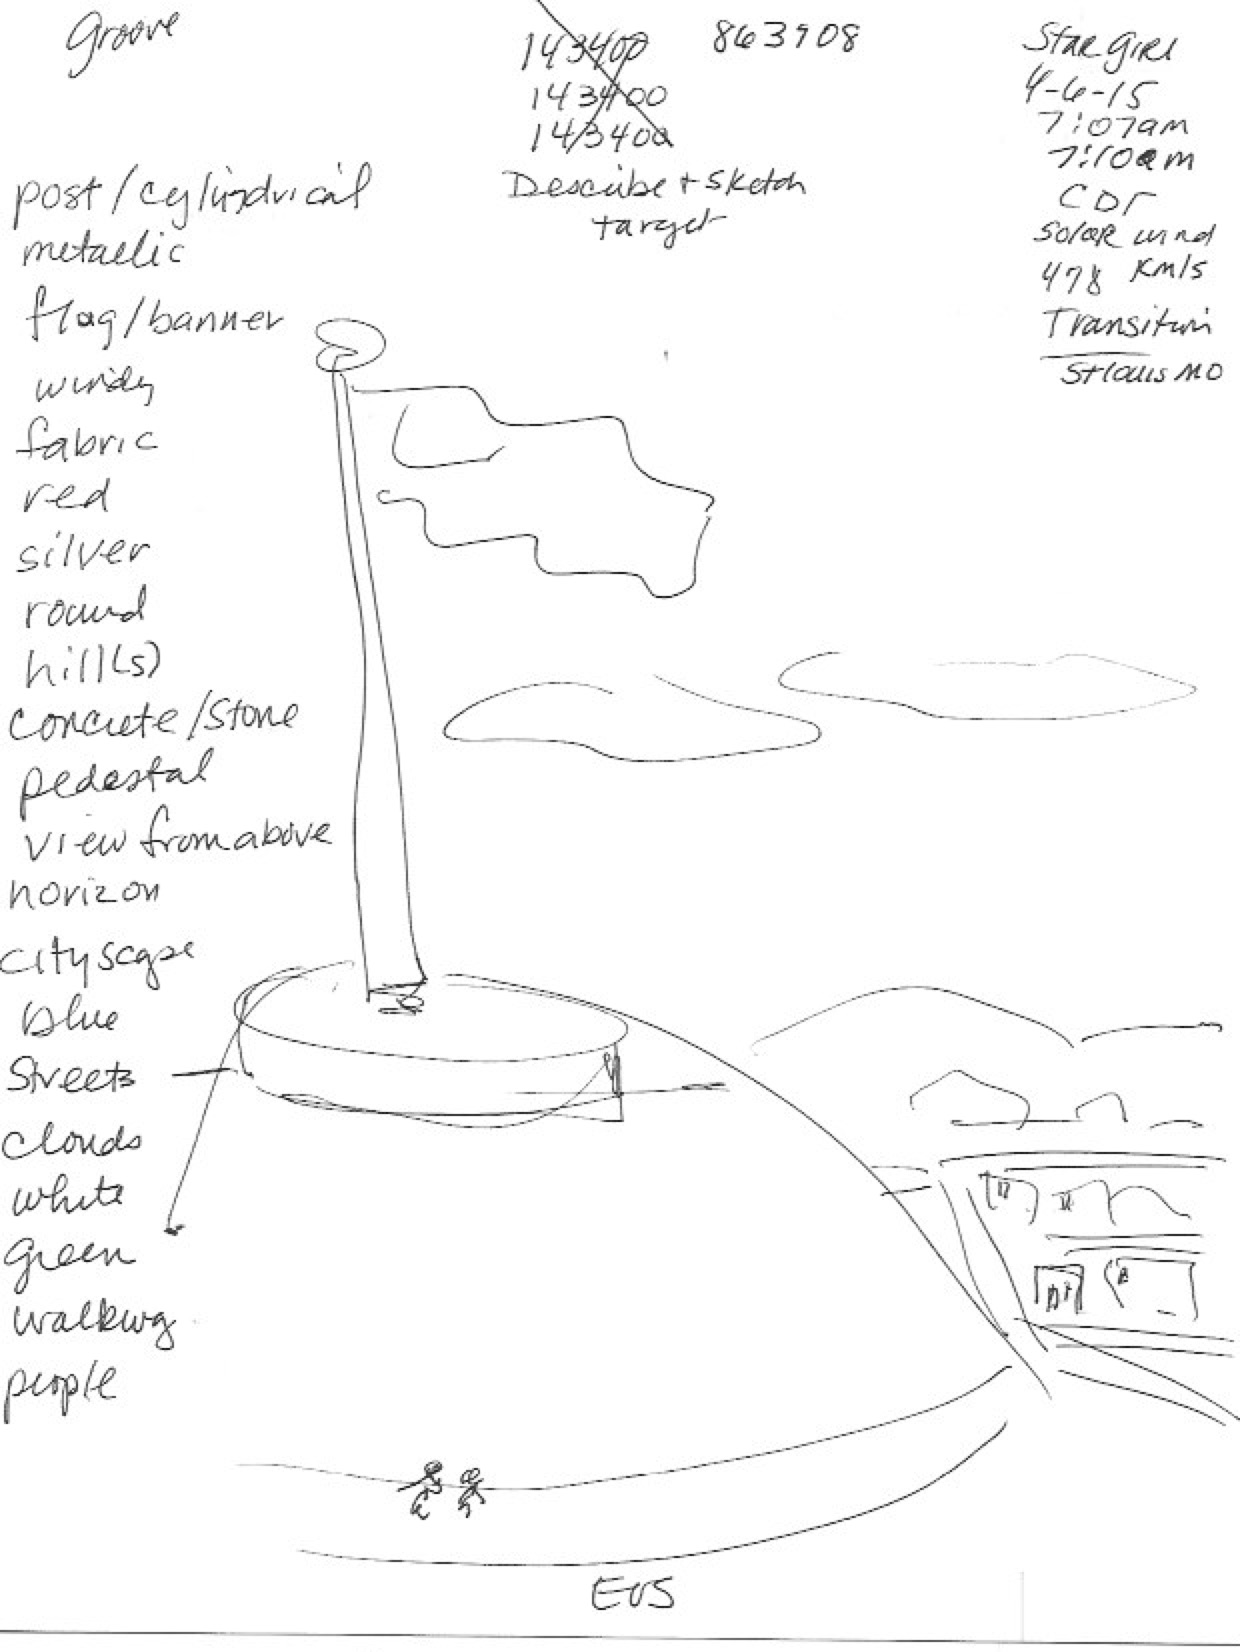 Groove
143400
143400
143400
863908
Describe + Sketch
target
Star Girl
4-6-15
7:07am
7:10am
CDT
Solar wind
478 Km/s
Transition
St Louis MO
post/cylindrical
metallic
flag/banner
windy
fabric
red
silver
round
hill(s)
concrete/stone
pedestal
view from above
horizon
cityscape
blue
streets
clouds
white
green
walking
people
EOS